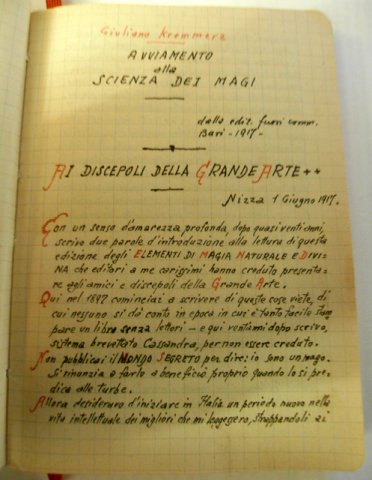 Giuliano Kremmerz
AVVIAMENTO
alla
SCIENZA DEI MAGI
dalla ediz. fuori comm.
Bari - 1917 -
AI DISCEPOLI DELLA GRANDE ARTE ++
Nizza 1 Giugno 1917.
Con un senso d'amarezza profonda, dopo quasi venti anni,
scrivo due parole d'introduzione alla lettura di questa
edizione degli ELEMENTI DI MAGIA NATURALE E DIVI=
NA che editori a me carissimi hanno creduto presenta=
re agli amici e discepoli della Grande Arte.
Qui nel 1897 cominciai a scrivere di queste cose viete, di
cui nessuno si dà conto in epoca in cui è tanto facile stam
pare un libro senza lettori - e qui venti anni dopo scrivo,
sistema brevettato Cassandra, per non essere creduto.
Non pubblicai il MONDO SEGRETO per dire: io sono un mago.
Si rinunzia a farlo a beneficio proprio quando lo si pre=
dica alle turbe.
Allora desideravo d'iniziare in Italia un periodo nuovo nella
vita intellettuale dei migliori che mi leggessero, strappandoli ai